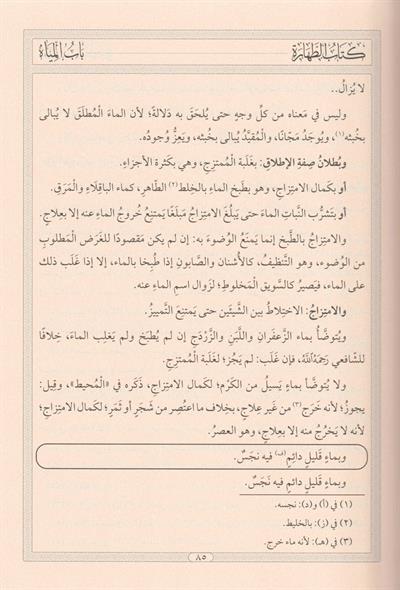 كتاب الطهارة
باب المياه
لا يُزالُ..
وليس في مَعناه من كلِّ وجهٍ حتى يُلحَقَ به دَلالةً؛ لأن الماءَ الْمُطلَقَ لا يُبالى
بخُبثه(١)، ويُوجَدُ مَجّانًا، والْمُقيَّدُ يُبالى بخُبثه، ويَعِزُّ وجُودُه.
وبُطلانُ صِفةِ الإطلاقِ: بغَلَبة الْممتزِجِ، وهي بكَثرة الأجزاءِ.
أو بكَمال الامتِزاجِ، وهو بطَبخ الماءِ بالخِلط(٢) الطّاهرِ، كماء الباقِلّاءِ والْمَرَقِ.
أو بتَشرُّب النَّباتِ الماءَ حتى يَبلُغَ الامتِزاجُ مَبلَغًا يَمتنِعُ خُروجُ الماءِ عنه إلا بعِلاجٍ.
والامتِزاجُ بالطَّبخ إنما يَمنَعُ الوُضوءَ به: إن لم يكن مَقصودًا للغَرَض الْمطلوبِ
من الوُضوء، وهو التَّنظيفُ، كالأُشنان والصّابونِ إذا طُبِخا بالماء، إلا إذا غَلَب ذلك
على الماءِ، فيَصيرُ كالسَّويق الْمَخلوطِ؛ لزَوال اسمِ الماءِ عنه.
والامتِزاجُ: الاختِلاطُ بين الشَّيئَين حتى يَمتنِعَ التَّمييزُ.
ويُتوضَّأُ بماء الزَّعفَرانِ واللَّبَنِ والزَّردَجِ إن لم يُطبَخ ولم يَغلِب الماءَ، خِلافًا
للشّافعي رَحِمَهُ اللَّهُ، فإن غَلَب: لم يَجُز؛ لغَلَبة الْمُمتزِجِ.
ولا يُتوضَّأُ بماءٍ يَسيلُ من الكَرْم؛ لكَمال الامتِزاجِ، ذَكَره في «الْمُحيط»، وقيل:
يجوزُ؛ لأنه خَرَج(٣) من غَير عِلاجٍ، بخِلاف ما اعتُصِر من شَجَرٍ أو ثَمَرٍ؛ لكمال الامتِزاجِ؛
لأنه لا يَخْرُجُ منه إلا بعِلاجٍ، وهو العصرُ.
وبماءٍ قَليلٍ دائِمٍ فيه نَجَسٌ.
وبماءٍ قَليلٍ دائمٍ فيه نَجَسٌ.
(١) في (أ) و(د): نجسه.
(٢) في (ز): بالخليط.
(٣) في (هـ): لأنه ماء خرج.
٨٥